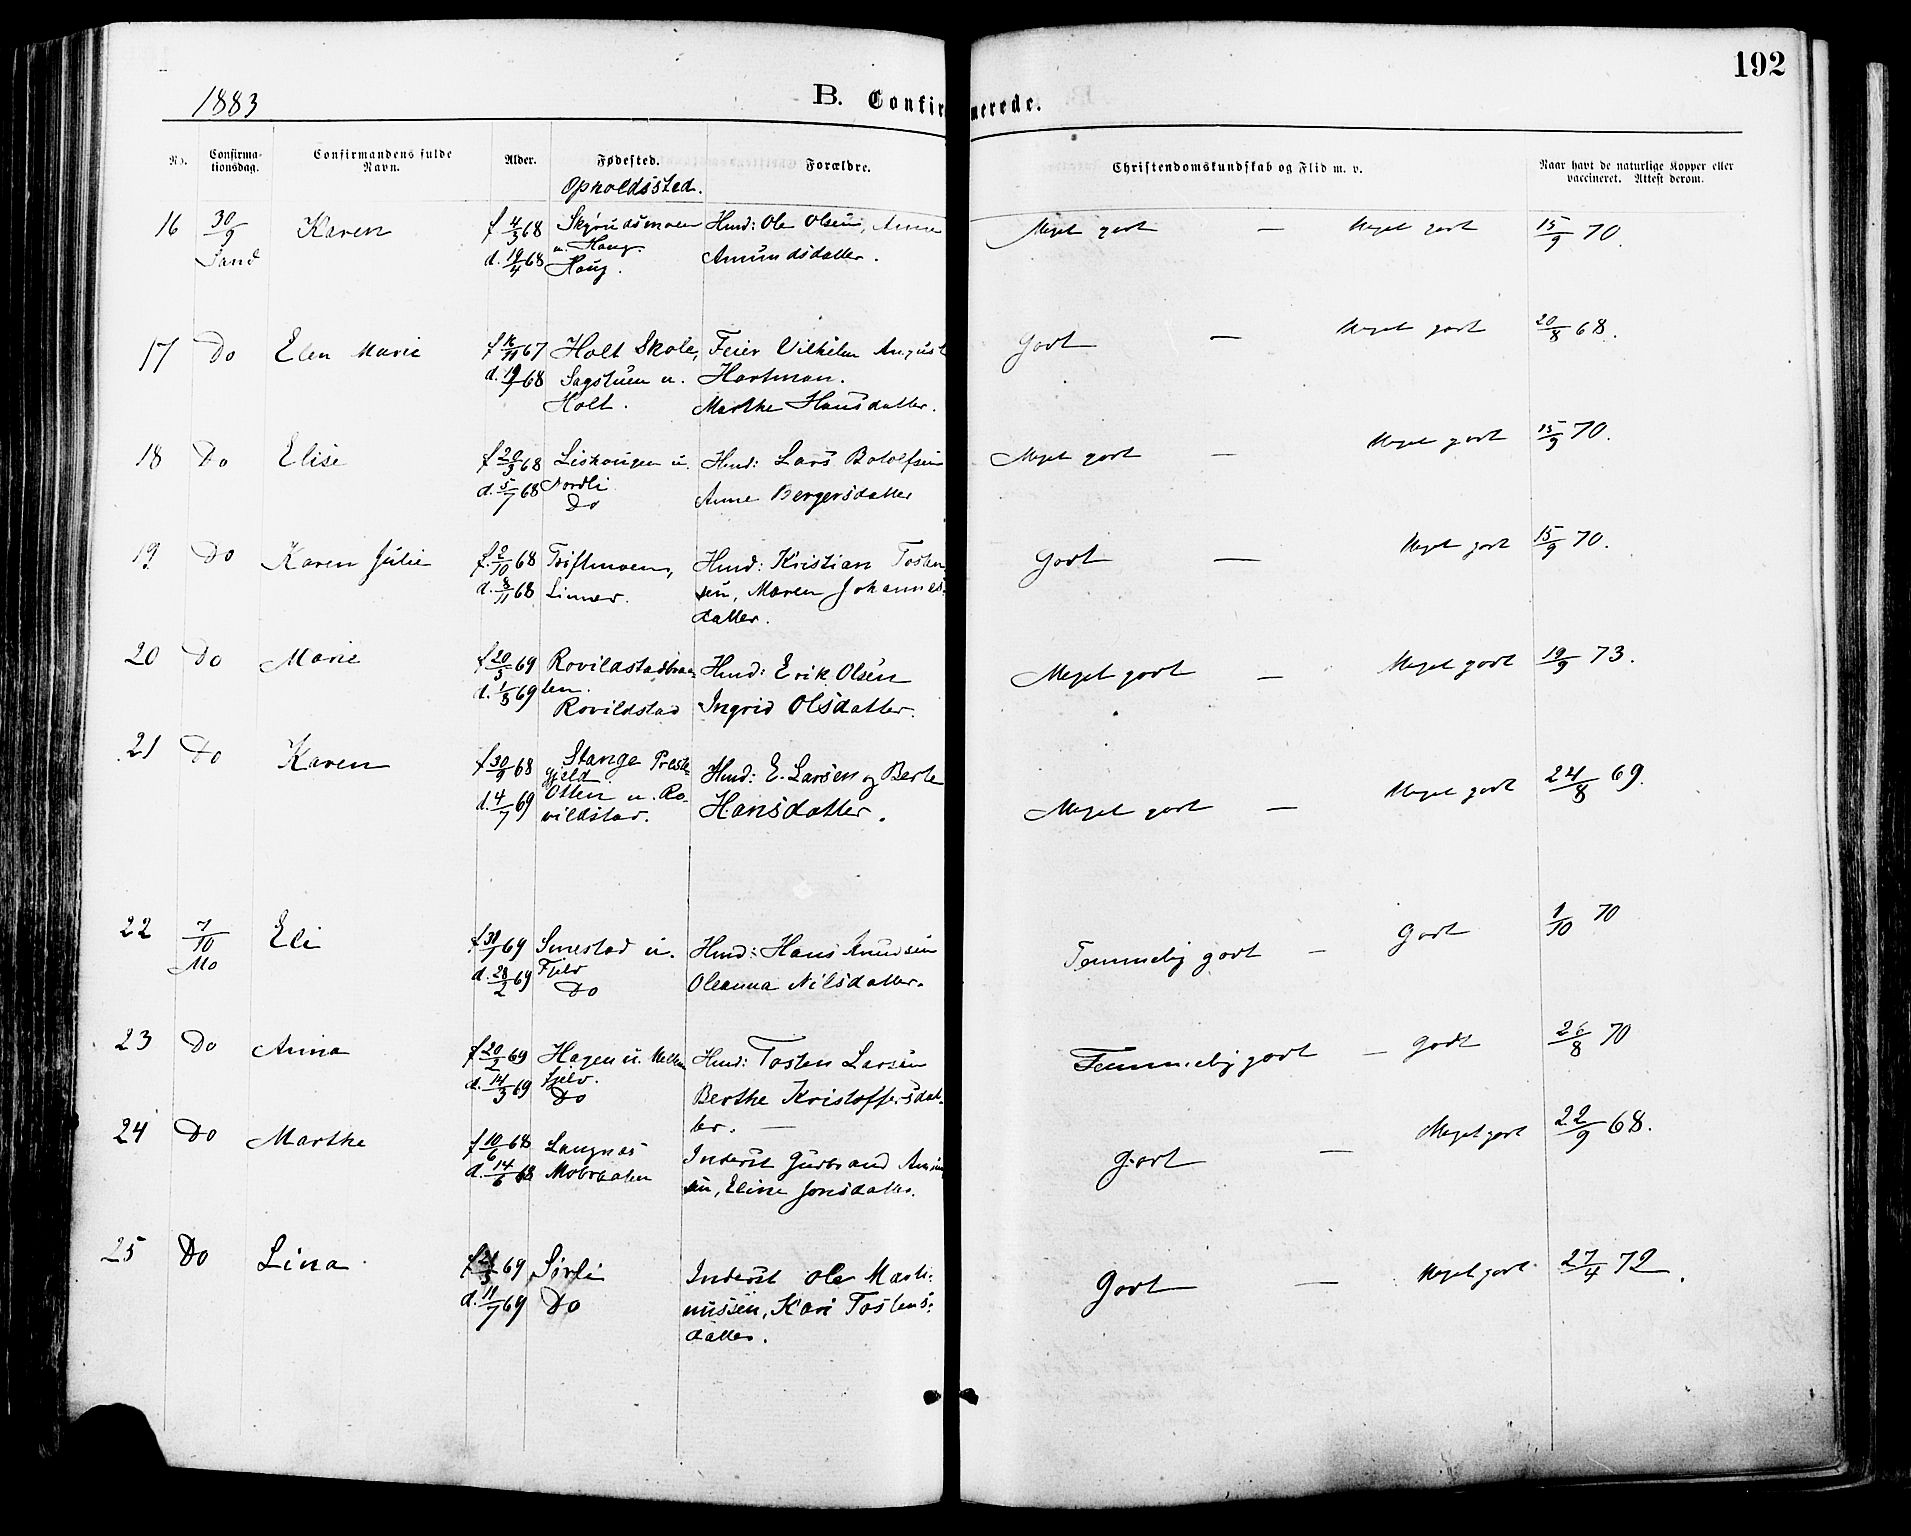 192
1883
B. Confirmerede.
No. Confirmationsdag. Confirmandens fulde Navn. Alder. Fødested. Forældre. Christendomskundskab og Flid m. v. Naar havt de naturlige Kopper eller vaccineret. Attest derom.
Opholdssted.
16 30/9 Karen f 4/3 68 Skyrudsmoen Hmd: Ole Olsen, Anne Meget godt — Meget godt 15/9 70.
Sand d. 19/4 68 u. Haug. Amundsdatter.
Haug.
17 Do Elen Marie f 67 Holt Skole, Feier Vilhelm August Godt — Meget godt 20/8 68.
d. 68 Sagstuen u. Hartman.
Holt. Marthe Hansdatter.
18 Do Elise f 20/3 68 u. Hmd: Lars Botolfsen Meget godt — Meget godt 15/9 70.
d. 5/7 68 Nordli Anne Bergersdatter
Do
19 Do Karen Julie f. 2/10 68 Hmd: Kristian Tosten Godt — Meget godt 15/9 70.
d. 8/11 68 sen, Maren Johannes-
datter.
20 Do Marie f 69 Rovildstadbraa- Hmd: Erik Olsen Meget godt — Meget godt 19/9 73.
d. 69 ten. Ingrid Olsdatter.
Rovildstad
21 Do Karen f 30/9 68 Stange Preste- Hmd: E. Larsen og Berte Meget godt — Meget godt 24/8 69.
gjeld Hansdatter.
d. 4/7 69 Otten u. Ro-
vildstad.
22 7/10 Eli f 69 Smestad u. Hmd: Hans Knudsen Temmelig godt — Godt 1/10 70
Mo d. 28/2 69 Fjeld Oleanna Nilsdatter.
Do
23 Do Anna f 20/2 69 Hagen u. Hmd: Tosten Larsen Temmelig godt — Godt 26/8 70
d. 14/3 69 fjeld. Berthe Kristoffersdat-
Do ter. —
24 Do Marthe f 10/6 68 Langnæs Inderst Gudbrand Godt — Meget godt 22/9 68.
d. 14/6 68 Mobraaten sen, Eline Jonsdatter.
25 Do Lina f 69 Sørli Inderst Ole Marti- Godt — Meget godt 27/4 72.
d. 11/7 69 Do nussen, Kari Tostens-
datter.